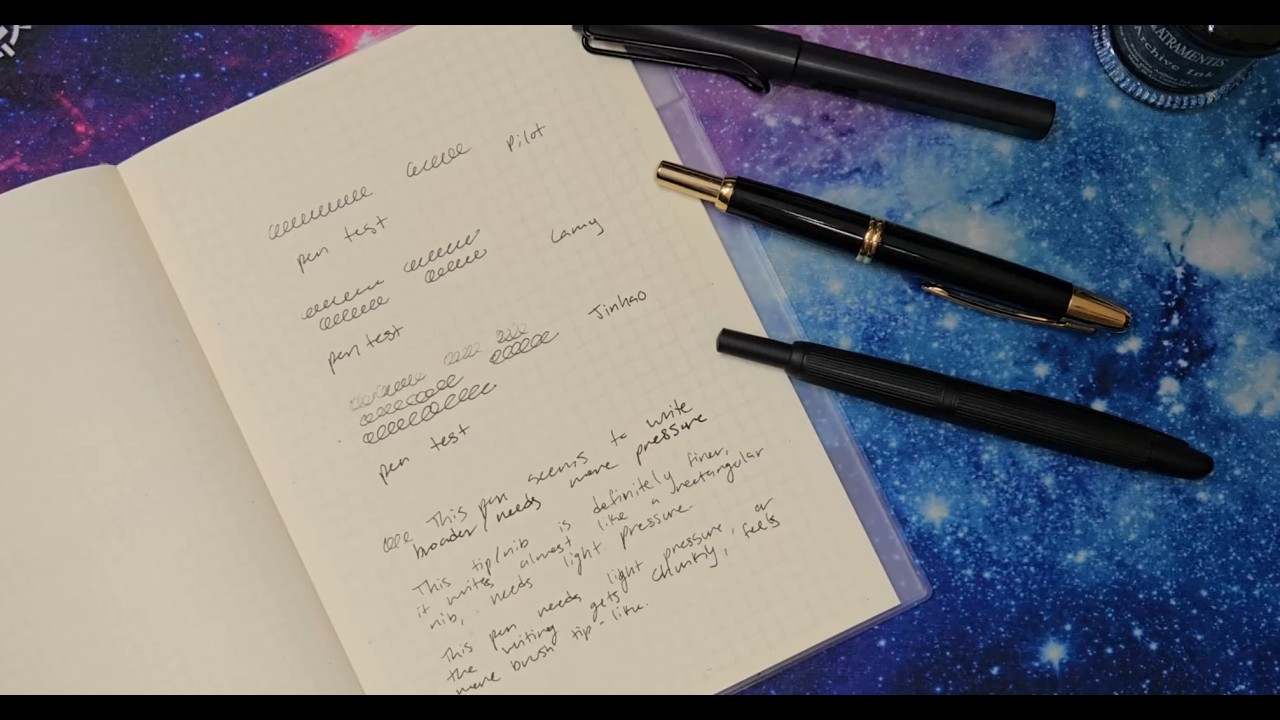 eeeeeeeeee eeeeee Pilot
pen test
eeeeeee eeeeeee Lamy
eeeeeee eeeeee
pen test
eeeeeeee eeee eee Jinhao
eeeeeeeee eeeeee
eeeeeeeeeeee
pen test
eee This pen seems to write
broader/needs more pressure
This tip/nib is definitely finer,
it writes almost like a rectangular
nib, needs light pressure.
This pen needs light pressure, or
the writing gets chunkly, feels
more brush tip-like.
ATRAMENTIS
Archive Ink